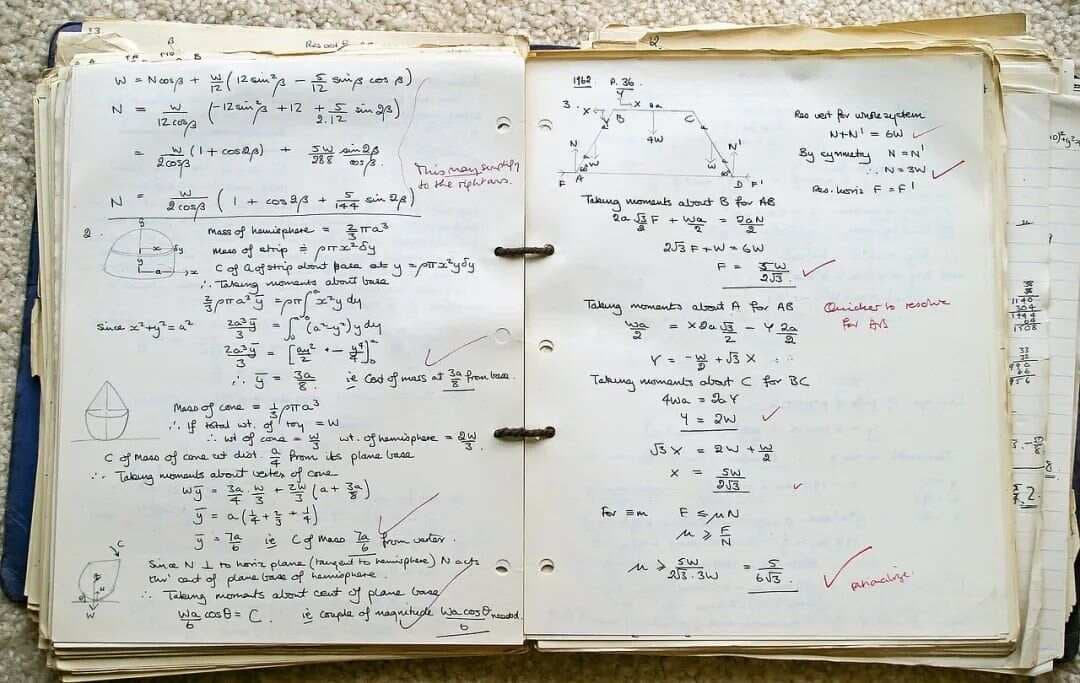 W = N cos β + W/12 (12 sin²β − 5/12 sin β cos β)
N = W/12cosβ (−12 sin²β + 12 + 5/2.12 sin 2β)
= W/2cosβ (1 + cos 2β) + 5W/288 sin 2β/cos β.
This may simplify
to the right ans.
N = W/2cosβ (1 + cos 2β + 5/144 sin 2β)
2.
Mass of hemisphere = 2/3 πa³
Mass of strip = ρπx²δy
C of G of strip about base at y = ρπx²yδy
∴ Taking moments about base
2/3 ρπa³ȳ = ρπ∫₀ᵃ x²y dy
Since x²+y² = a² 2a³ȳ/3 = ∫₀ᵃ (a²−y²) y dy
2a³ȳ/3 =
∴ ȳ = 3a/8. ie Cent of mass at 3a/8 from base.
Mass of cone = 1/3 ρπa³
∴ If total wt. of toy = W
∴ wt of cone = W/3 wt. of hemisphere = 2W/3.
C of Mass of cone at dist. a/4 from its plane base
∴ Taking moments about vertex of cone
Wȳ = 3a/4 . W/3 + 2W/3 (a + 3a/8)
ȳ = a(1/4 + 2/3 + 1/4)
ȳ = 7a/6 ie C of Mass 7a/6 from vertex.
Since N ⊥ to horiz plane (tangent to hemisphere) N acts
thr' cent of plane base of hemisphere.
∴ Taking moments about cent of plane base
Wa/6 cosθ = C. ie couple of magnitude Wa cosθ/6 needed.
C
W
1962 P. 36.
3.
Y
X X 2a
B C
4W
N N'
W W
F A D F'
Res vert for whole system
N+N' = 6W
By symmetry N = N'
∴ N = 3W
Res. horiz F = F'
Taking moments about B for AB
2a √3/2 F + Wa/2 = 2aN/2
2√3 F + W = 6W
F = 5W/2√3.
Taking moments about A for AB
Quicker to resolve
for AB
Wa/2 = X 2a √3/2 − Y 2a/2
Y = −W/2 + √3 X
Taking moments about C for BC
4Wa = 2a Y
Y = 2W
√3 X = 2W + W/2
X = 5W/2√3.
For ≡m F ≤ μN
μ ≥ F/N
μ ≥ 5W/2√3.3W = 5/6√3.
rationalize.